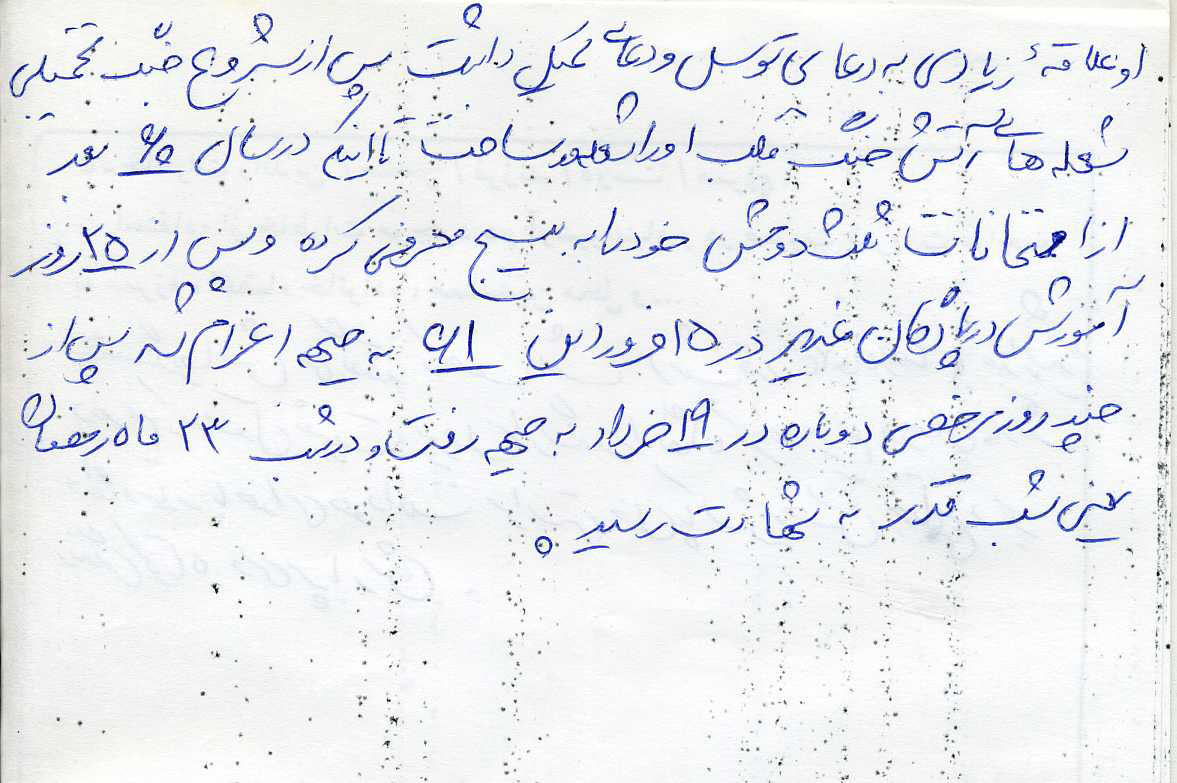 او علاقهٔ زیادی به دعای توسل و دعای کمیل داشت پس از شروع جنگ تحمیلی
شعله های آتش جنگ قلب او را شعله‌ور ساخت تا اینکه در سال ۶۰ بعد
از امتحانات ثلث دومش خود را به بسیج معرفی کرده و پس از ۲۵ روز
آموزش در پادگان غدیر در ۱۵ فروردین ۶۱ به جبهه اعزام شد پس از
چند روز مرخصی دوباره در ۱۹ خرداد به جبهه رفت و در شب ۲۳ ماه رمضان
یعنی شب قدر به شهادت رسید.